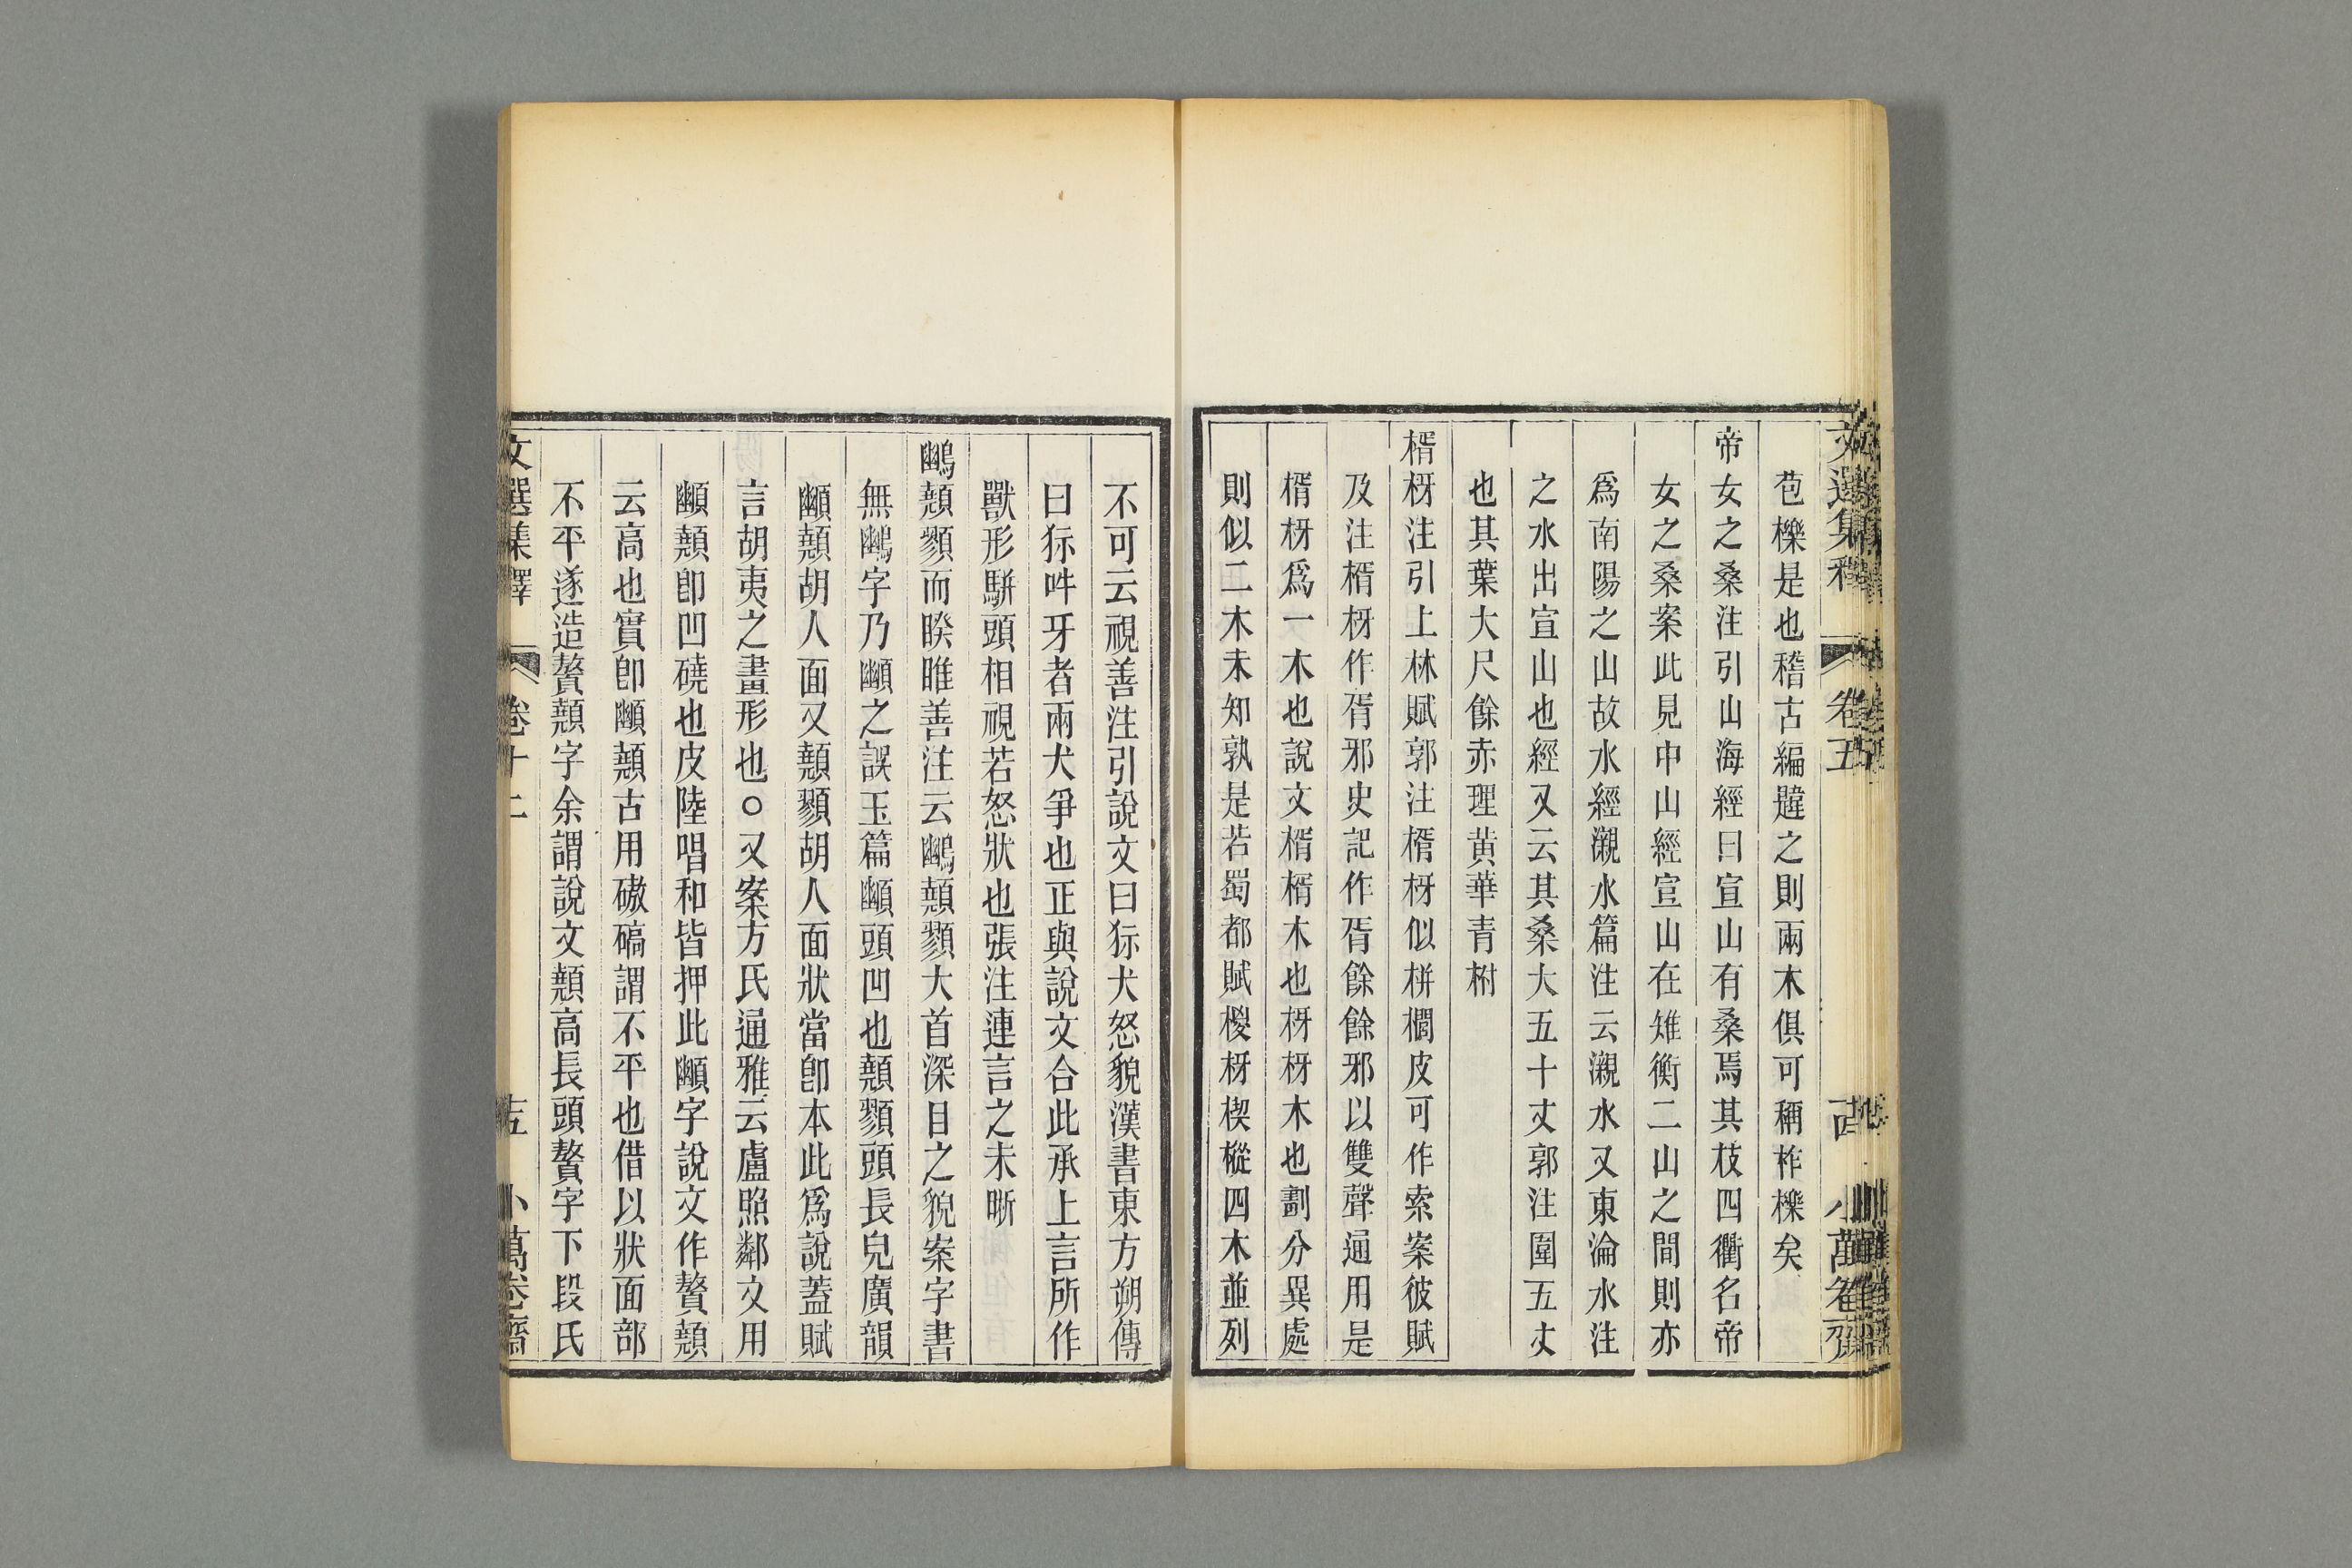 文選集釋 卷五 古 小萬卷齋
苞櫟是也稽古編韙之則兩木俱可稱柞櫟矣
帝女之桑注引山海經曰宣山有桑焉其枝四衢名帝
女之桑案此見中山經宣山在雉衡二山之間則亦
爲南陽之山故水經瀙水篇注云瀙水又東淪水注
之水出宣山也經又云其桑大五十丈郭注圍五丈
也其葉大尺餘赤理黃華青柎
楈枒注引上林賦郭注楈枒似栟櫚皮可作索案彼賦
及注楈枒作胥邪史記作胥餘餘邪以雙聲通用是
楈枒爲一木也說文楈楈木也枒枒木也劃分異處
則似二木未知孰是若蜀都賦㯶枒楔樅四木並列
不可云視善注引說文曰狋犬怒貌漢書東方朔傳
曰狋吽牙者兩犬爭也正與說文合此承上言所作
獸形騈頭相視若怒狀也張注連言之未晰
顤顟而睽睢善注云顤顟大首深目之貌案字書
無字乃之誤玉篇頭凹也顤顟頭長皃廣韻
顤胡人面又顤顟胡人面狀當卽本此爲說蓋賦
言胡夷之畫形也○又案方氏通雅云盧照鄰文用
顤卽凹磽也皮陸唱和皆押此字說文作贅顤
云高也實卽顤古用磝碻謂不平也借以狀面部
不平遂造贅顤字余謂說文顤高長頭贅字下段氏
文選集釋 卷十二 十五 小萬卷齋